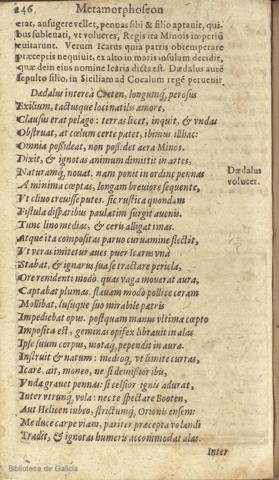 246. Metamorphoseon
erat, aufugere vellet, pennas sibi & filio aptauit, qui-
bus subleuati, vt volucres, Regis ira Minois imperiũ
euitarunt. Verum Icarus quia patris obtemperare
præceptis nequiuit, ex alto in maris insulam decidit,
quæ dein eius nomine Icaria dicta est. Dædalus autẽ
sepulto filio, in Siciliam ad Cocalum regẽ peruenit.
Dædalus intereà Creten, longumq́, perosus
Exilium, tactusque loci natalis amore,
Clausus erat pelago: terras licet, inquit, & vndas
Obstruat, at cœlum certe patet, ibimus illhac:
Omnia possideat, non possidet aera Minos.
Dixit, & ignotas animum dimittit in artes,
Naturamq́, nouat. nam ponit in ordine pennas
A minima cœptas, longam breuiore sequente,
Vt cliuo creuisse putes. sic rustica quondam
Fistula disparibus paulatim surgit auenis.
Tunc lino medias, & ceris alligat imas.
Atque ita compositas paruo curuamine flectit,
Vt veras imitetur aues puer Icarus vnà
Stabat, & ignarus sua se tractare pericla,
Ore renidenti modò. quas vaga mouerat aura,
Captabat plumas. flauam modò pollice ceram
Mollibat, lusuque suo mirabile patris
Impediebat opus. postquam manus vltima cœpto
Imposita est, geminas opifex librauit in alas
Ipse suum corpus, motaq́, pependit in aura.
Instruit & natum: medioq́, vt limite curras,
Icare, ait, moneo, ne si demissior ibis,
Vnda grauet pennas: si celsior ignis adurat,
Inter vtrunq́, vola: nec te spectare Booten,
Aut Helicen iubeo, strictumq́, Orionis ensem:
Me duce carpe viam, pariter præcepta volandi
Tradit, & ignotas humeris accommodat alas.
Inter
Dædalus
volucer.
Biblioteca de Galicia